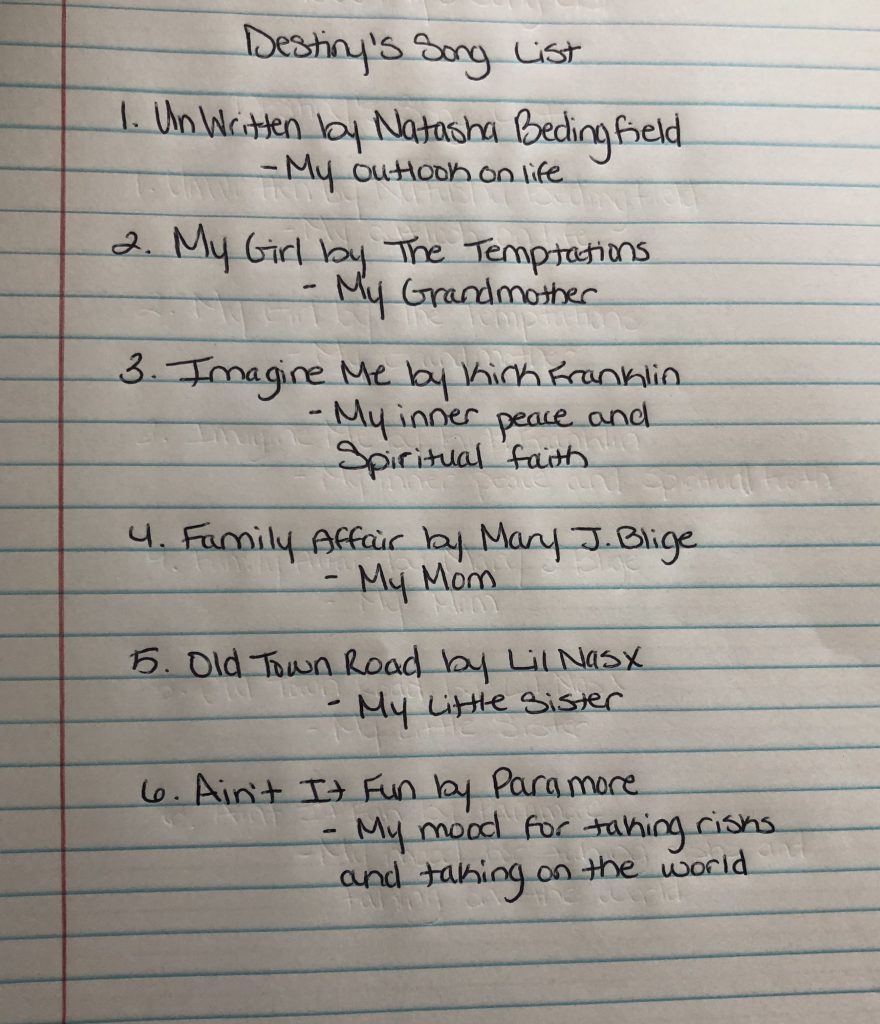 Destiny's Song List
1. UnWritten by Natasha Bedingfield
- My outlook on life
2. My Girl by The Temptations
- My Grandmother
3. Imagine Me by Kirk Franklin
- My inner peace and
Spiritual faith
4. Family Affair by Mary J. Blige
- My Mom
5. Old Town Road by Lil Nas X
- My Little Sister
6. Ain't It Fun by Paramore
- My mood for taking risks
and taking on the world